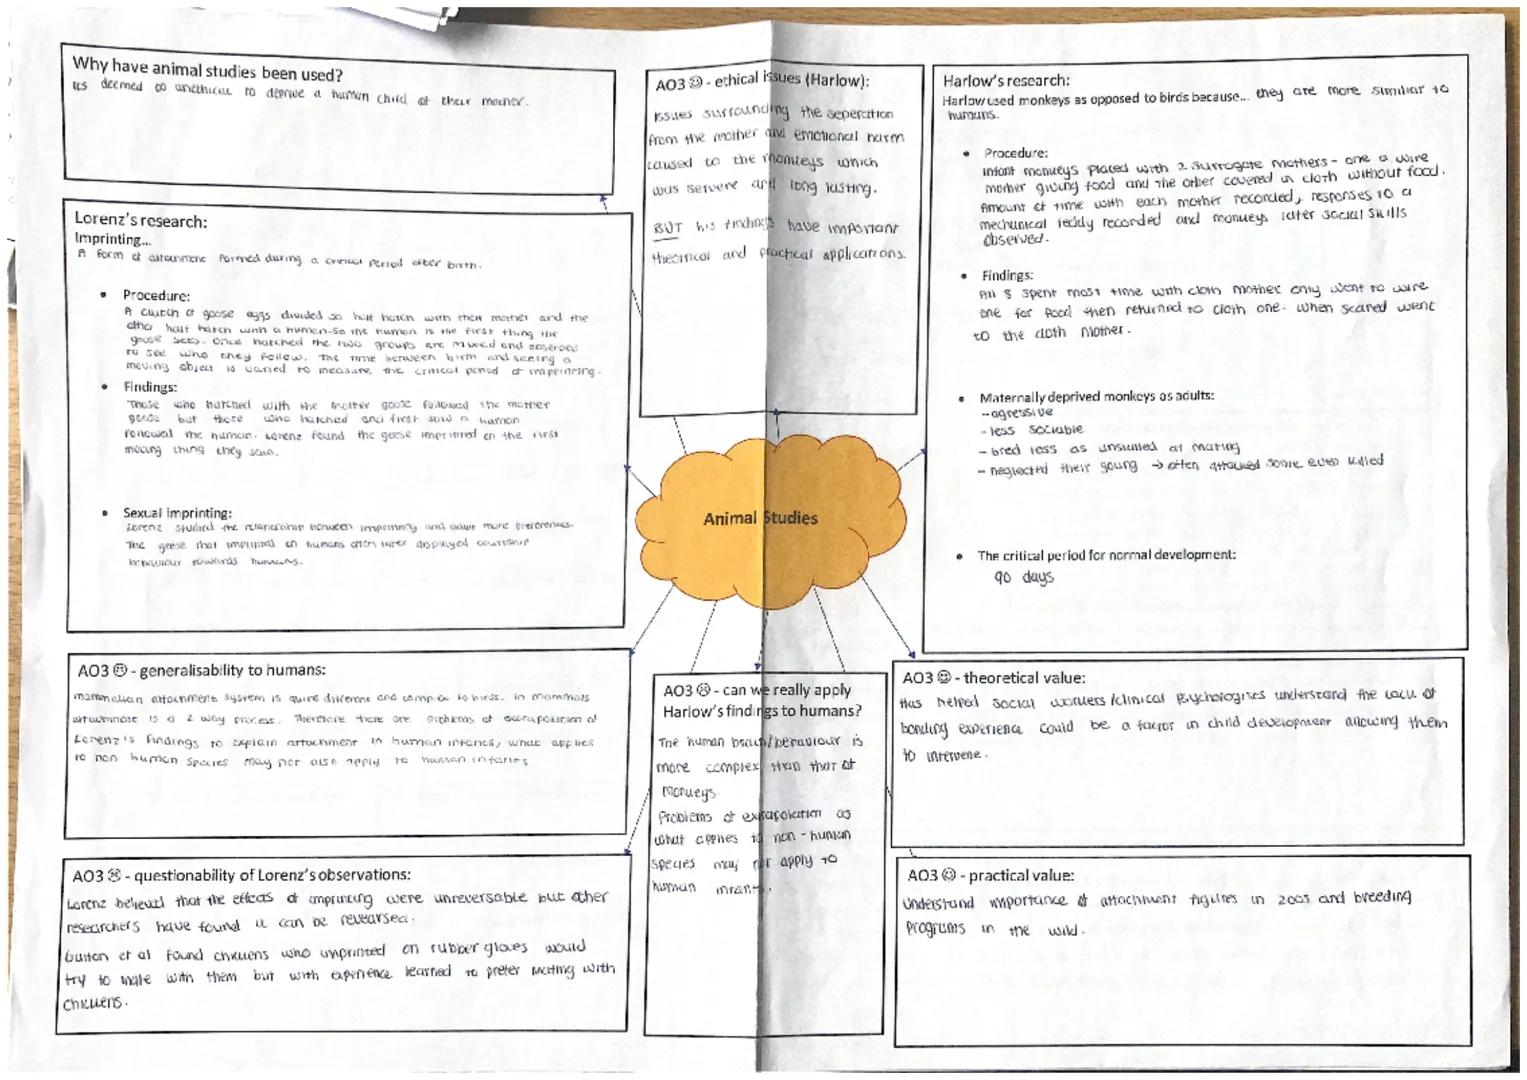 Why have animal studies been used?
its deemed oo unethical to deprive a human child of their mother.
Lorenz's research:
Imprinting...
A form of attachment formed during a critical period after birth.
• Procedure:
A clutch of goose eggs divided so half hatch with their mother and the
other half hatch with a human-so the human is the first thing the
goose sees. Once hatched the two groups are mixed and observed
to see who they follow. The time between birth and seeing a
moving object is varied to measure the critical period of imprinting.
• Findings:
Those who hatched with the mother goose followed the mother
goose but those who hatched and first saw a human
followed the human. Lorenz found the geese imprinted on the first
moving thing they saw.
• Sexual imprinting:
Lorenz studied the relationship between imprinting and adult mate preferences.
The geese that imprinted on humans often later displayed courtship
behaviour towards humans.
AO3 ☹ - generalisability to humans:
mammalian attachment system is quite different and complex to birds. in mammals
attachment is a 2 way process. Therefore there are problems of extrapolation of
Lorenz's findings to explain attachment in human infants, what applies
to non human species may not also apply to human infants.
AO3 ☹ - questionability of Lorenz's observations:
Lorenz believed that the effects of imprinting were unreversable but other
researchers have found it can be revearsed.
Guiton et al found chickens who imprinted on rubber gloves would
try to mate with them but with experience learned to prefer mating with
chickens.
AO3 ☹ - ethical issues (Harlow):
issues surrounding the seperation
from the mother and emotional harm
caused to the monkeys which
was servere and long lasting.
BUT his findings have important
theoritical and practical applications.
Animal Studies
AO3 ☹ - can we really apply
Harlow's findings to humans?
The human brain/behaviour is
more complex than that of
monkeys.
Problems of extrapolation as
what applies to non-human
species may not apply to
human infants.
Harlow's research:
Harlow used monkeys as opposed to birds because... they are more similiar to
humans.
• Procedure:
infant monkeys placed with 2 surrogate mothers - one a wire
mother giving food and the other covered in cloth without food.
Amount of time with each mother recorded, responses to a
mechanical teddy recorded and monkeys later social skills
observed.
• Findings:
All 8 spent most time with cloth mother only went to wire
one for food then returned to cloth one. When scared went
to the cloth mother.
• Maternally deprived monkeys as adults:
- agressive
- less sociable
- bred less as unskilled at mating
- neglected their young → often attacked some even killed
• The critical period for normal development:
90 days
AO3 ☺ - theoretical value:
Has helped social workers/clinical psychologists understand the lack of
bonding experience could be a factor in child development allowing them
to intervene.
AO3 ☺ - practical value:
Understand importance of attachment figures in zoos and breeding
programs in the wild.